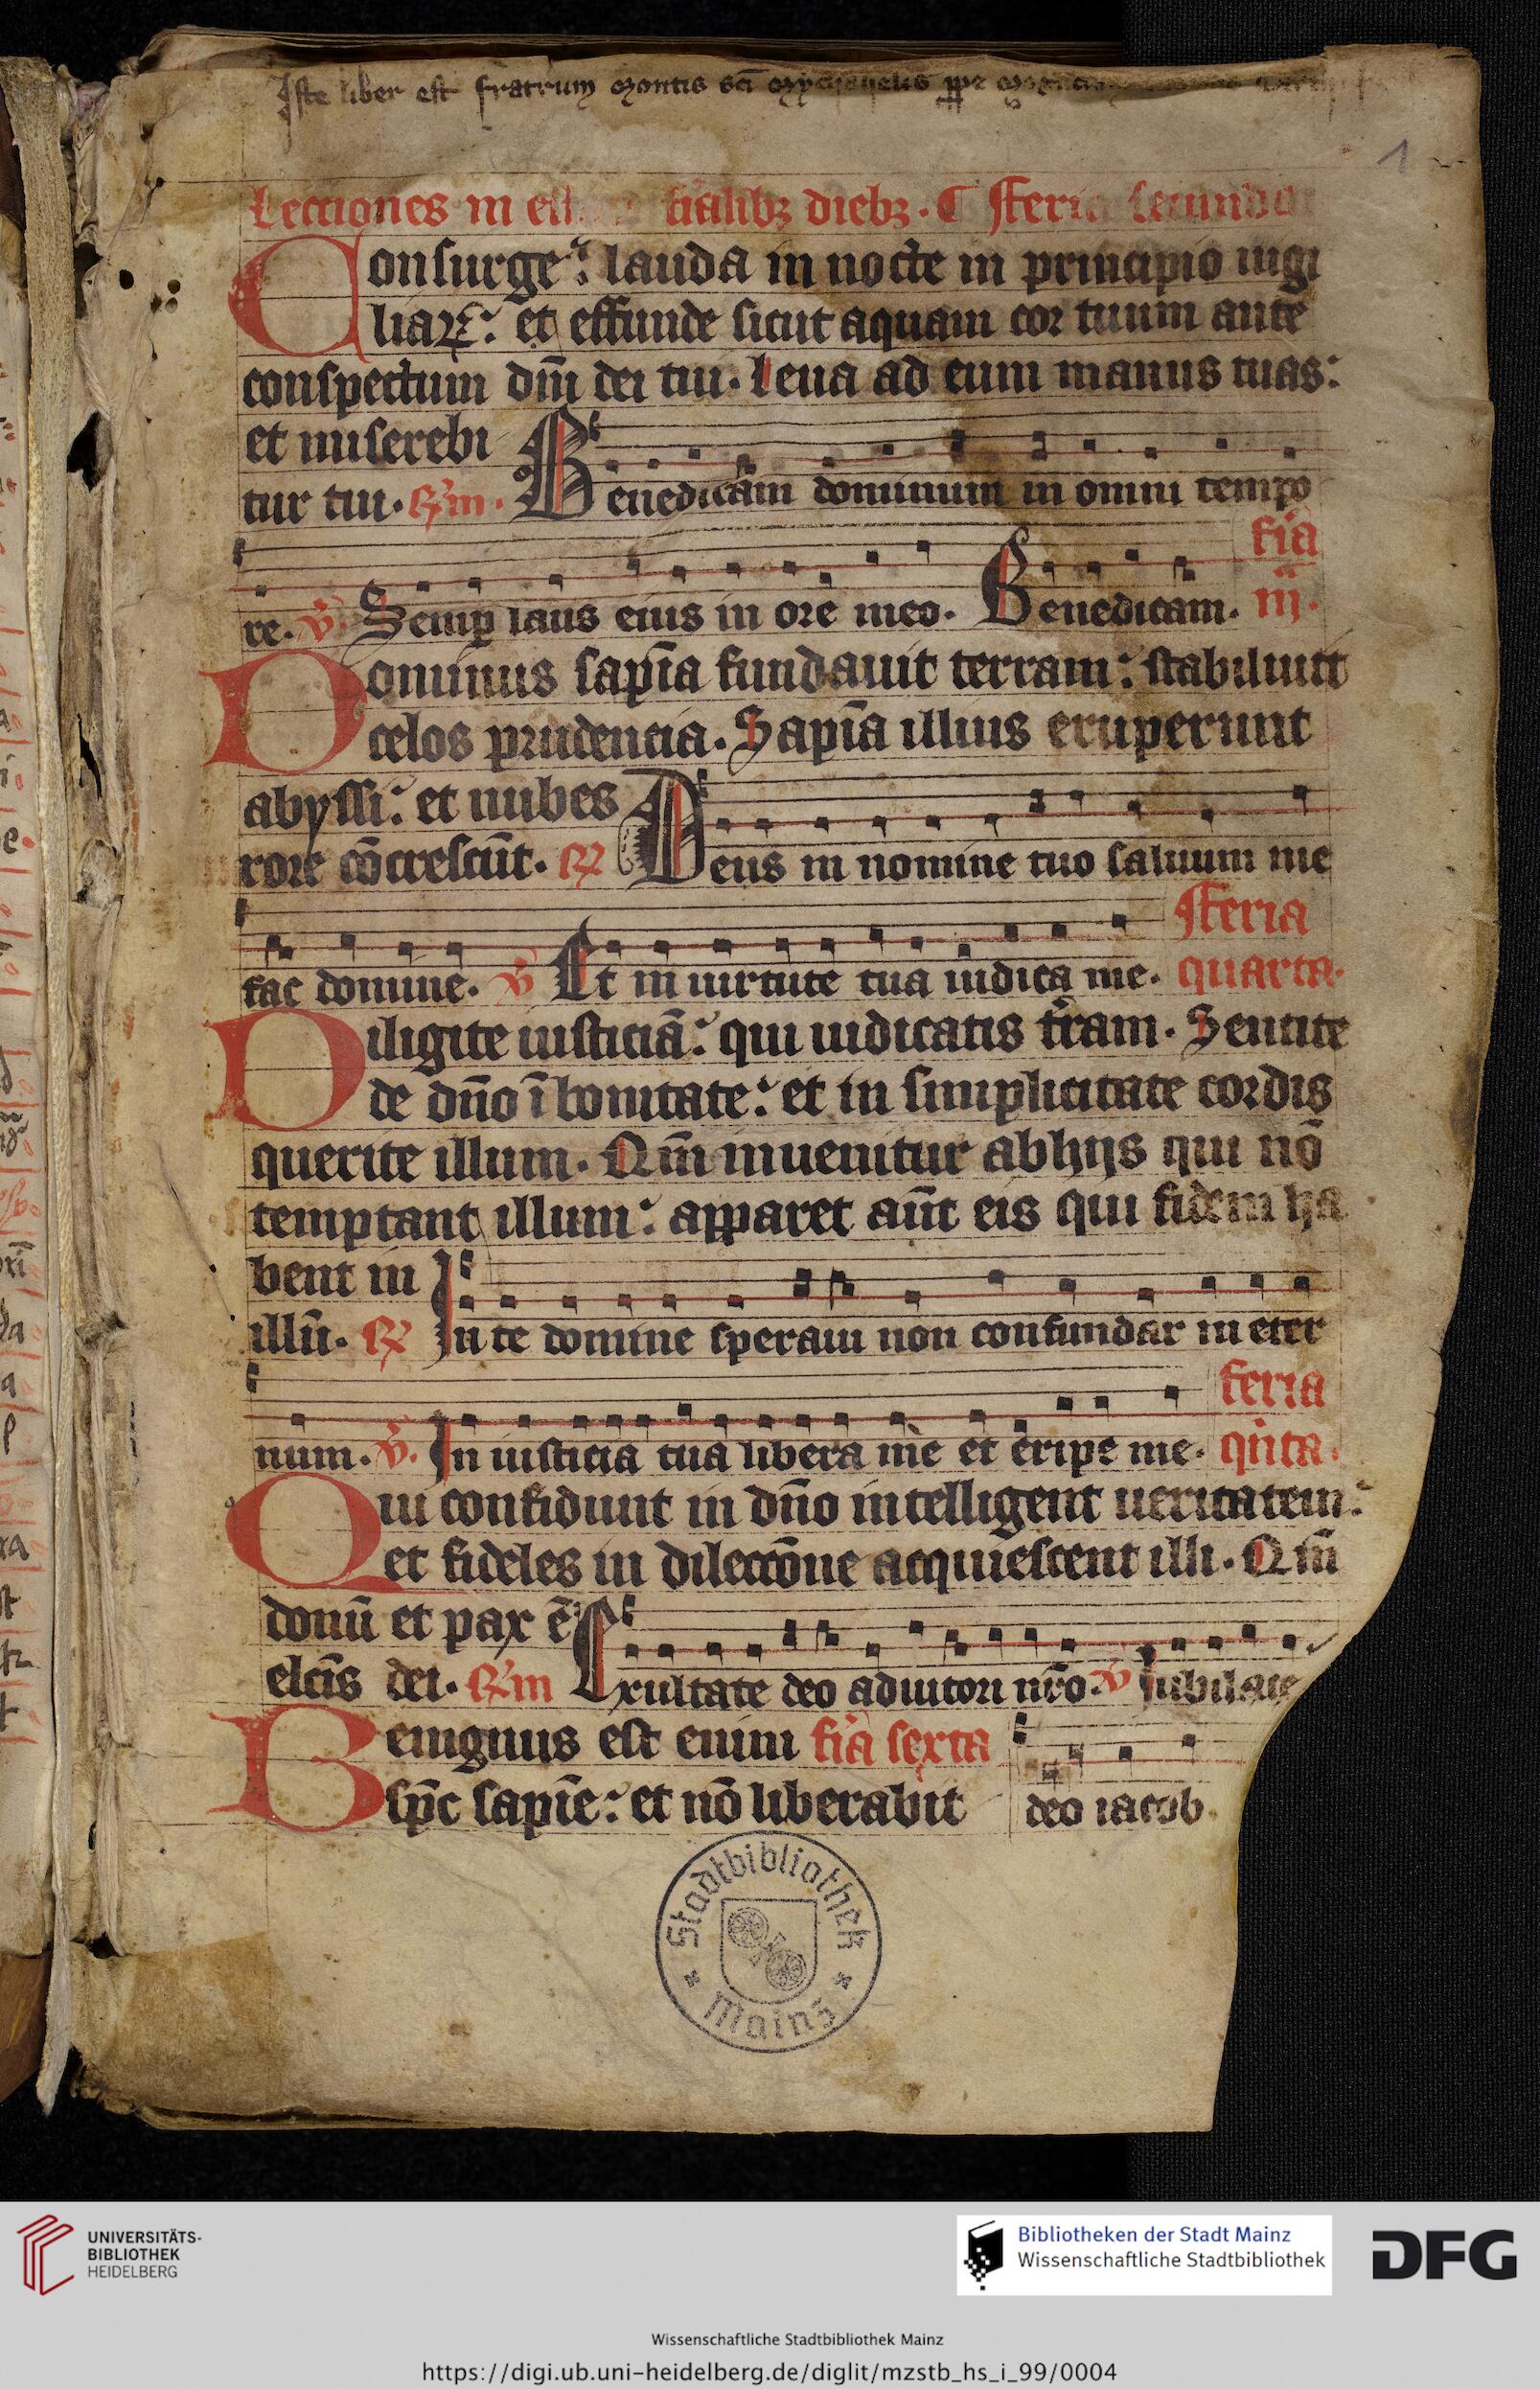 Iste liber est fratrum montis sci
1
Lectiones in diebz. ¶ Feria secunda
Consurge: lauda in nocte in principio uigi
liaꝝ: et effunde sicut aquam cor tuum ante
conspectum dm̄ dei tui. Leua ad eum manus tuas:
et miserebi
tur tui. Benedicam dominum in omni tempo
re. v̄. Semꝑ laus eius in ore meo. Benedicam. fia iij.
Dominus sapīa fundauit terram: stabiliuit
celos prudencia. Sapīa illius eruperunt
abyssi: et nubes
rore cōcrescūt. Deus in nomine tuo saluum me
fac domine. v̄ Et in uirtute tua iudica me. Feria quarta.
Diligite iusticiā: qui iudicatis tr̄am. Sentite
de dn̄o ī bonitate: et in simplicitate cordis
querite illum. Qm̄ inuenitur ab hijs qui nō
temptant illum: apparet aūt eis qui fidem ha
bent in
illū. In te domine speraui non confundar in eter
num. v̄. In iusticia tua libera me et eripe me. feria qn̄ta.
Qui confidunt in dn̄o intelligent ueritatem:
et fideles in dilectōne acquiescent illi. Qm̄
donū et pax ē
elcīs dei. Exultate deo adiutori nr̄o. v̄ Iubilate
Benignus est enim fia sexta
sp̄c sapīe: et nō liberabit deo iacob.
Stadtbibliothek
Mainz
UNIVERSITÄTS-
BIBLIOTHEK
HEIDELBERG
Bibliotheken der Stadt Mainz
Wissenschaftliche Stadtbibliothek
DFG
Wissenschaftliche Stadtbibliothek Mainz
https://digi.ub.uni-heidelberg.de/diglit/mzstb_hs_i_99/0004